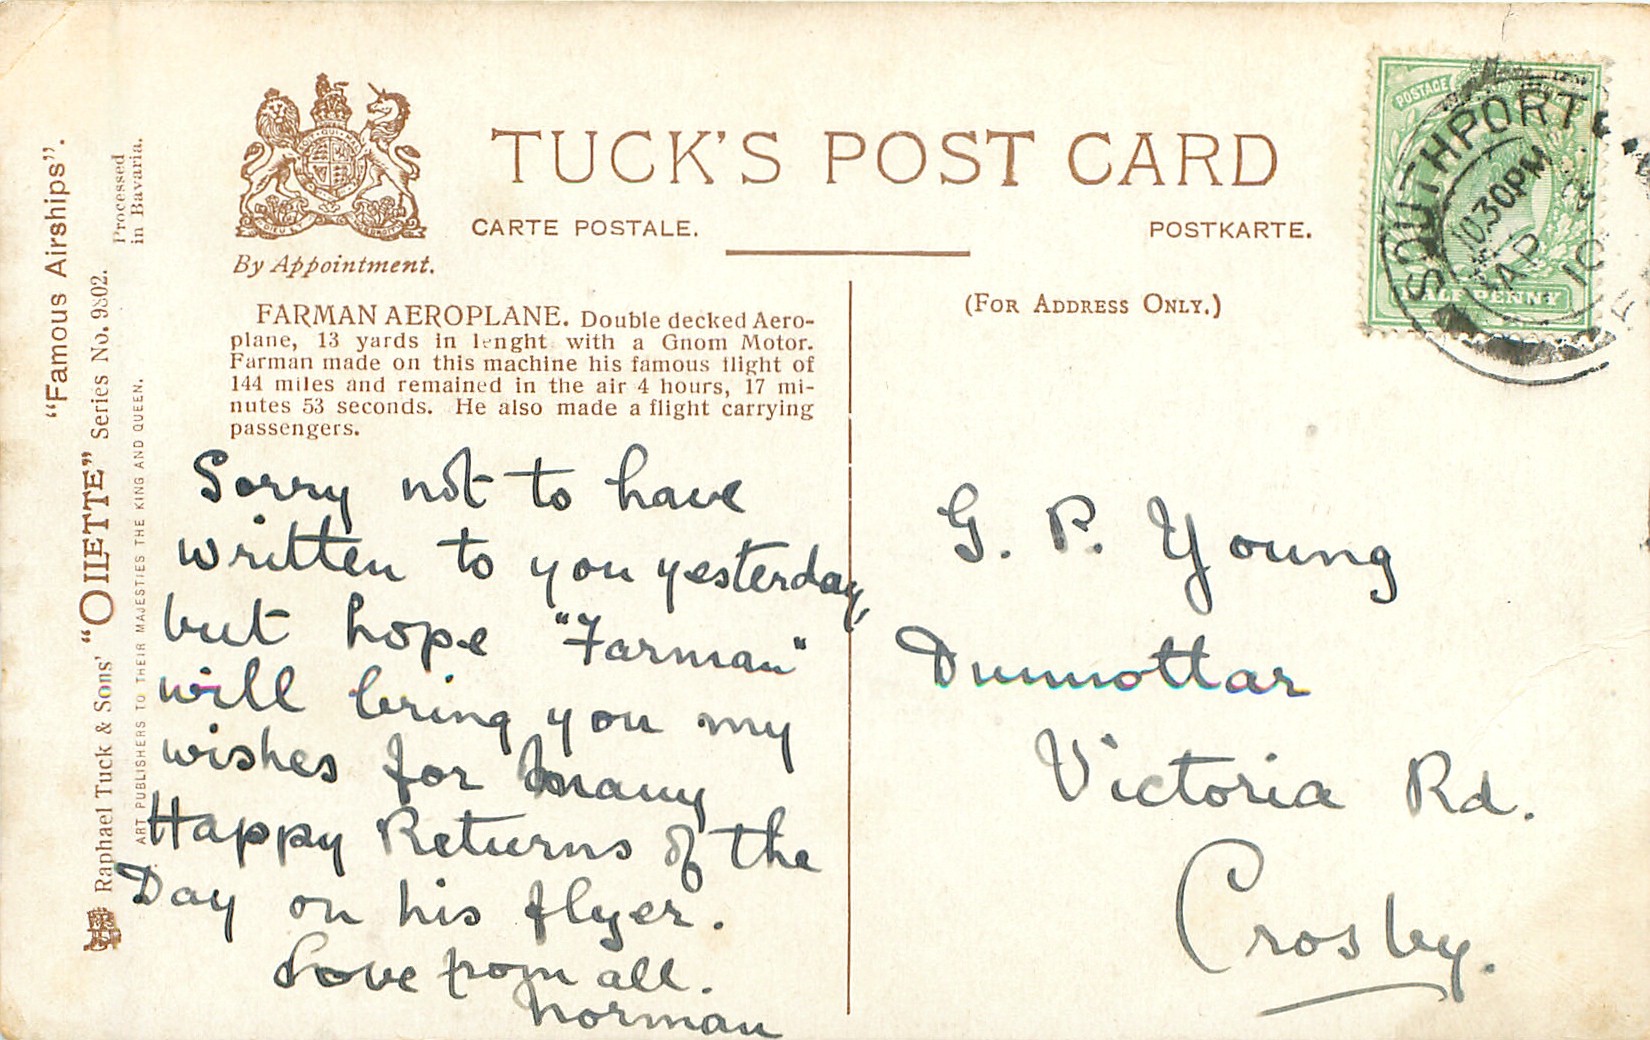 TUCK'S POST CARD
CARTE POSTALE.
POSTKARTE.
By Appointment.
(FOR ADDRESS ONLY.)
FARMAN AEROPLANE. Double decked Aero-
plane, 13 yards in lenght with a Gnom Motor.
Farman made on this machine his famous flight of
144 miles and remained in the air 4 hours, 17 mi-
nutes 53 seconds. He also made a flight carrying
passengers.
Sorry not to have
written to you yesterday,
but hope "Farman"
will bring you my
wishes for many
Happy Returns of the
Day on his flyer.
Love from all.
Norman
G. P. Young
Dunnottar
Victoria Rd.
Crosby.
"Famous Airships".
Raphael Tuck & Sons' "OILETTE" Series No. 9802.
Processed
in Bavaria.
ART PUBLISHERS TO THEIR MAJESTIES THE KING AND QUEEN.
POSTAGE
HALF PENNY
SOUTHPORT
10.30PM
AP
10